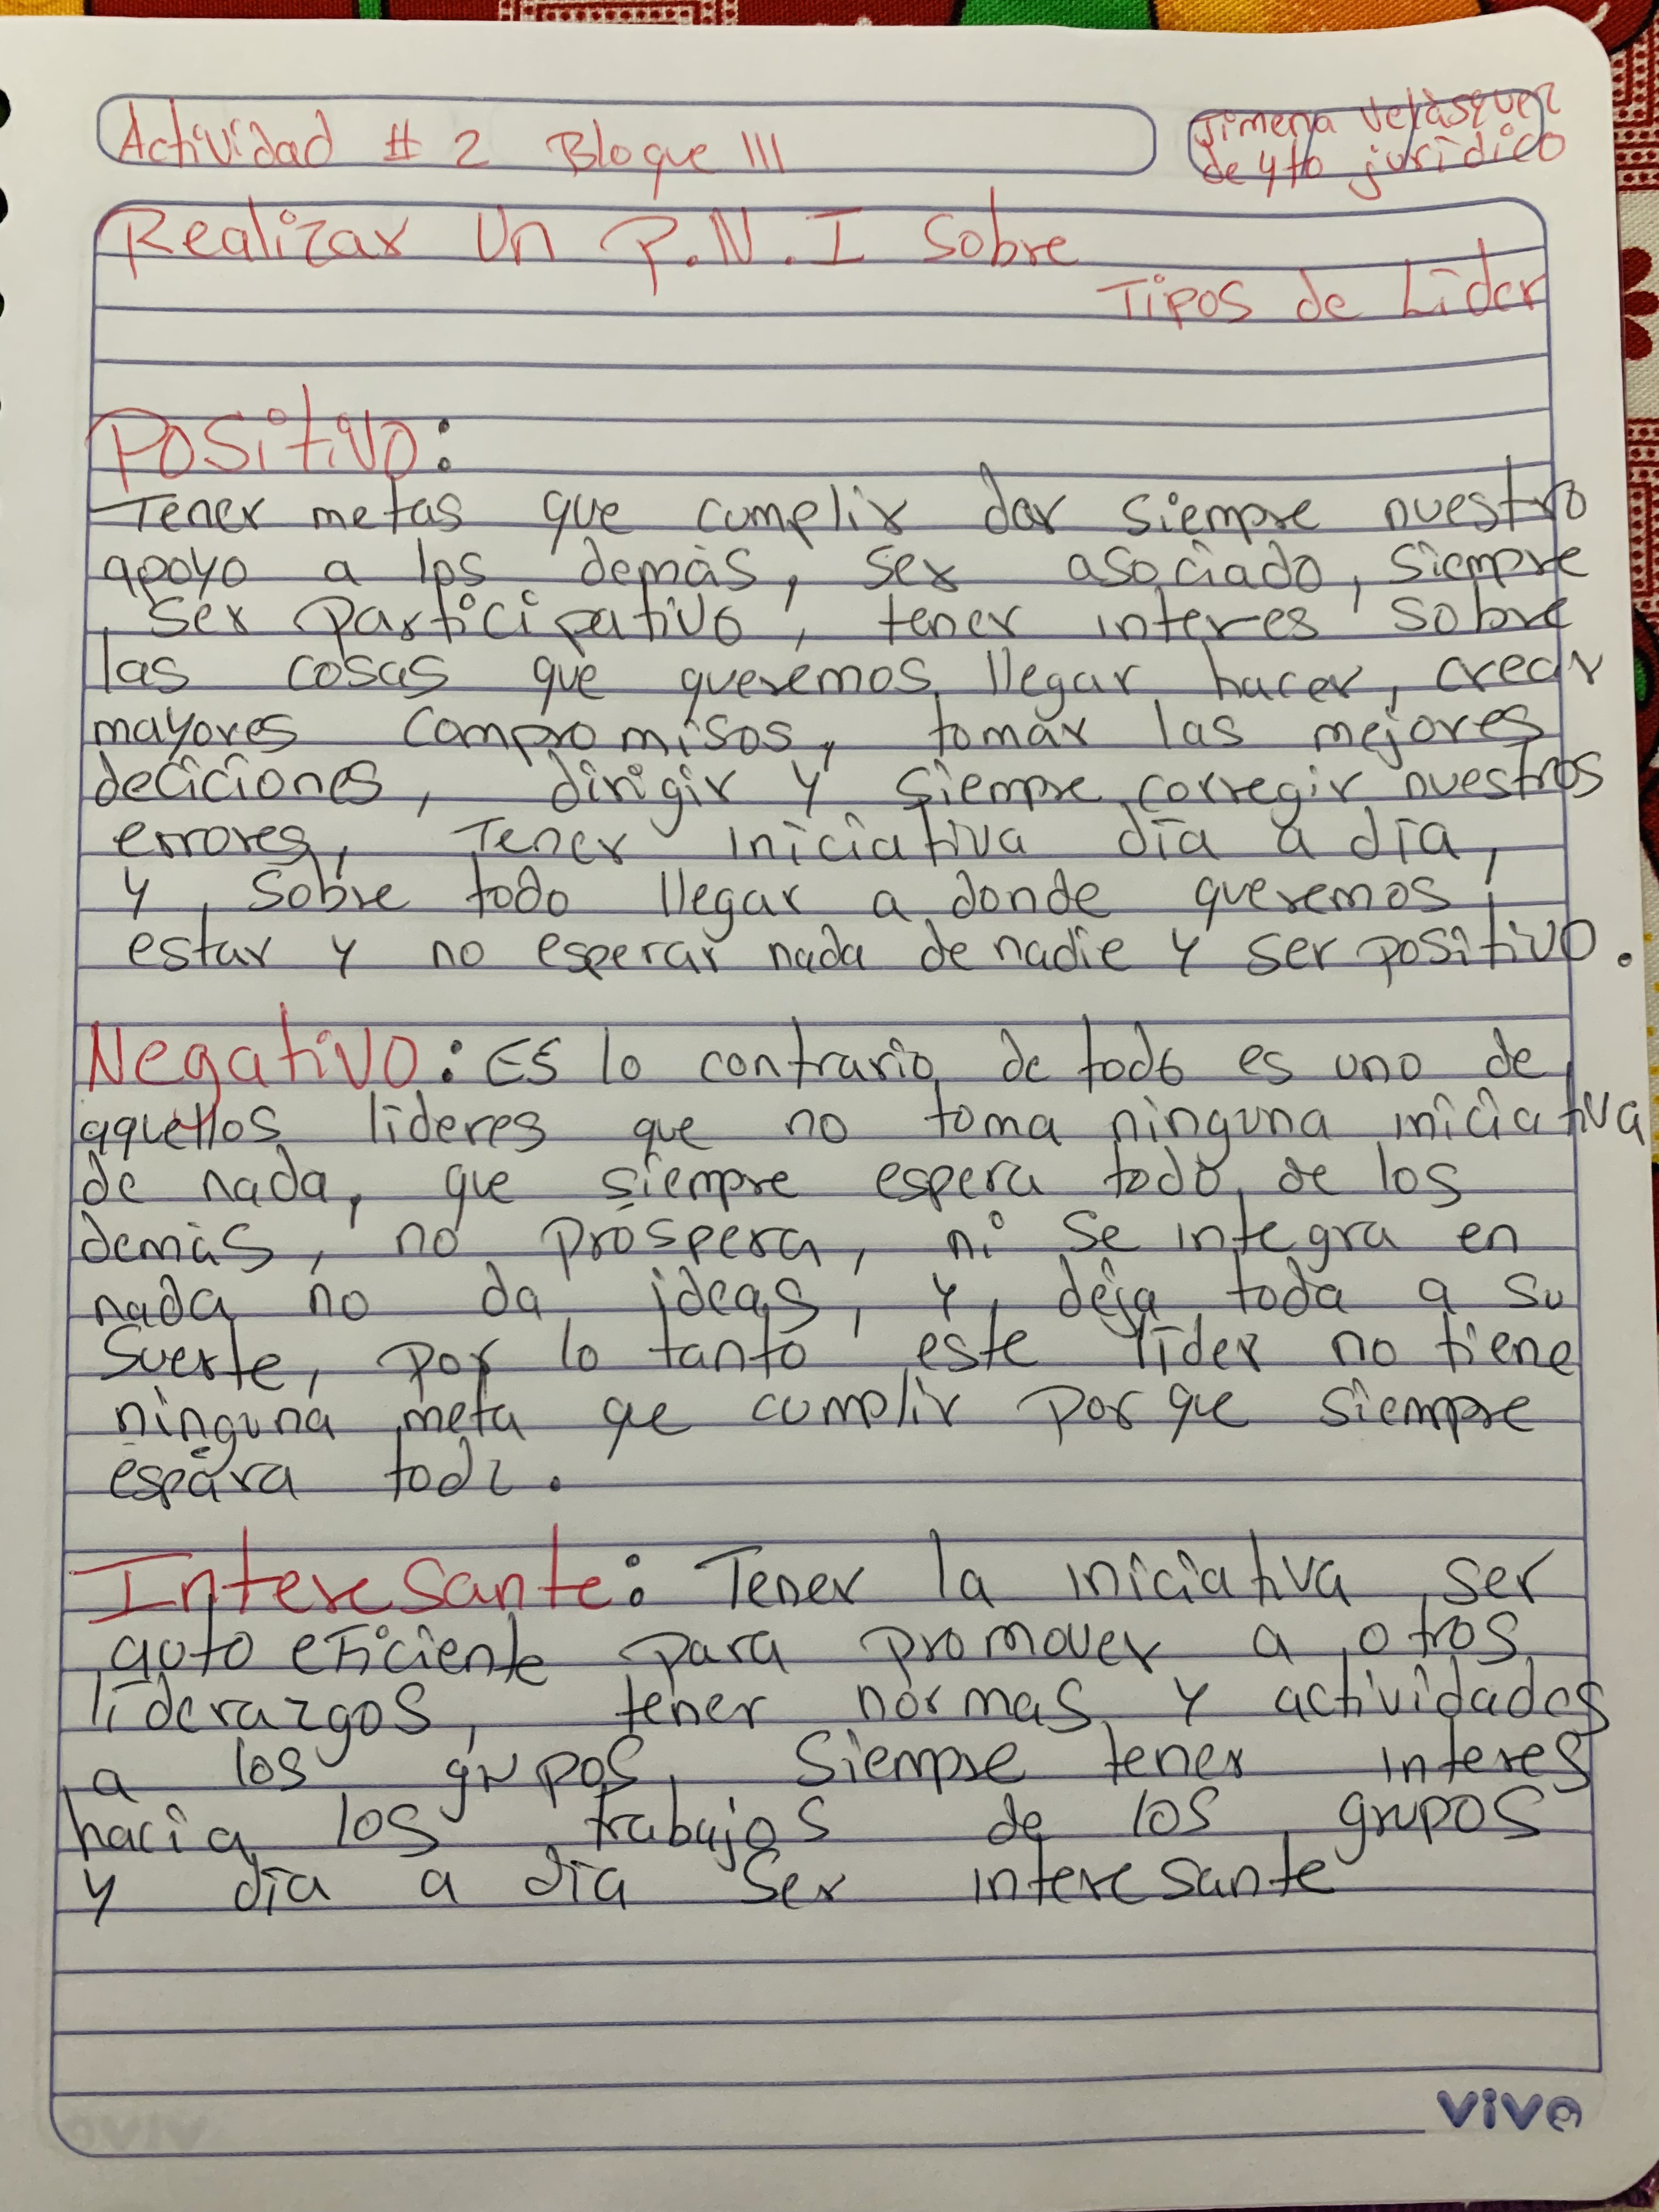 Actividad # 2 Bloque III
Jimena Velàsquez
de 4to jurídico
Realizar Un P.N.I Sobre
Tipos de Líder
Positivo:
Tener metas que cumplir dar siempre nuestro
apoyo a los demàs, ser asociado, siempre
ser participativo, tener interes sobre
las cosas que queremos llegar hacer, crear
mayores compromisos, tomar las mejores
deciciones, dirigir y siempre corregir nuestros
errores, Tener iniciativa día a día,
y sobre todo llegar a donde queremos
estar y no esperar nada de nadie y ser positivo.
Negativo: Es lo contrario de todo es uno de
aquellos lideres que no toma ninguna iniciativa
de nada, que siempre espera todo de los
demàs, no prospera, ni se integra en
nada no da ideas, y deja toda a su
suerte, por lo tanto este líder no tiene
ninguna meta qe cumplir por que siempre
espera
Interesante: Tener la iniciativa ser
auto eficiente para promover a otros
liderazgos, tener normas y actividades
a los grupos, siempre tener interes
hacia los trabajos de los grupos
y día a día ser interesante
viva